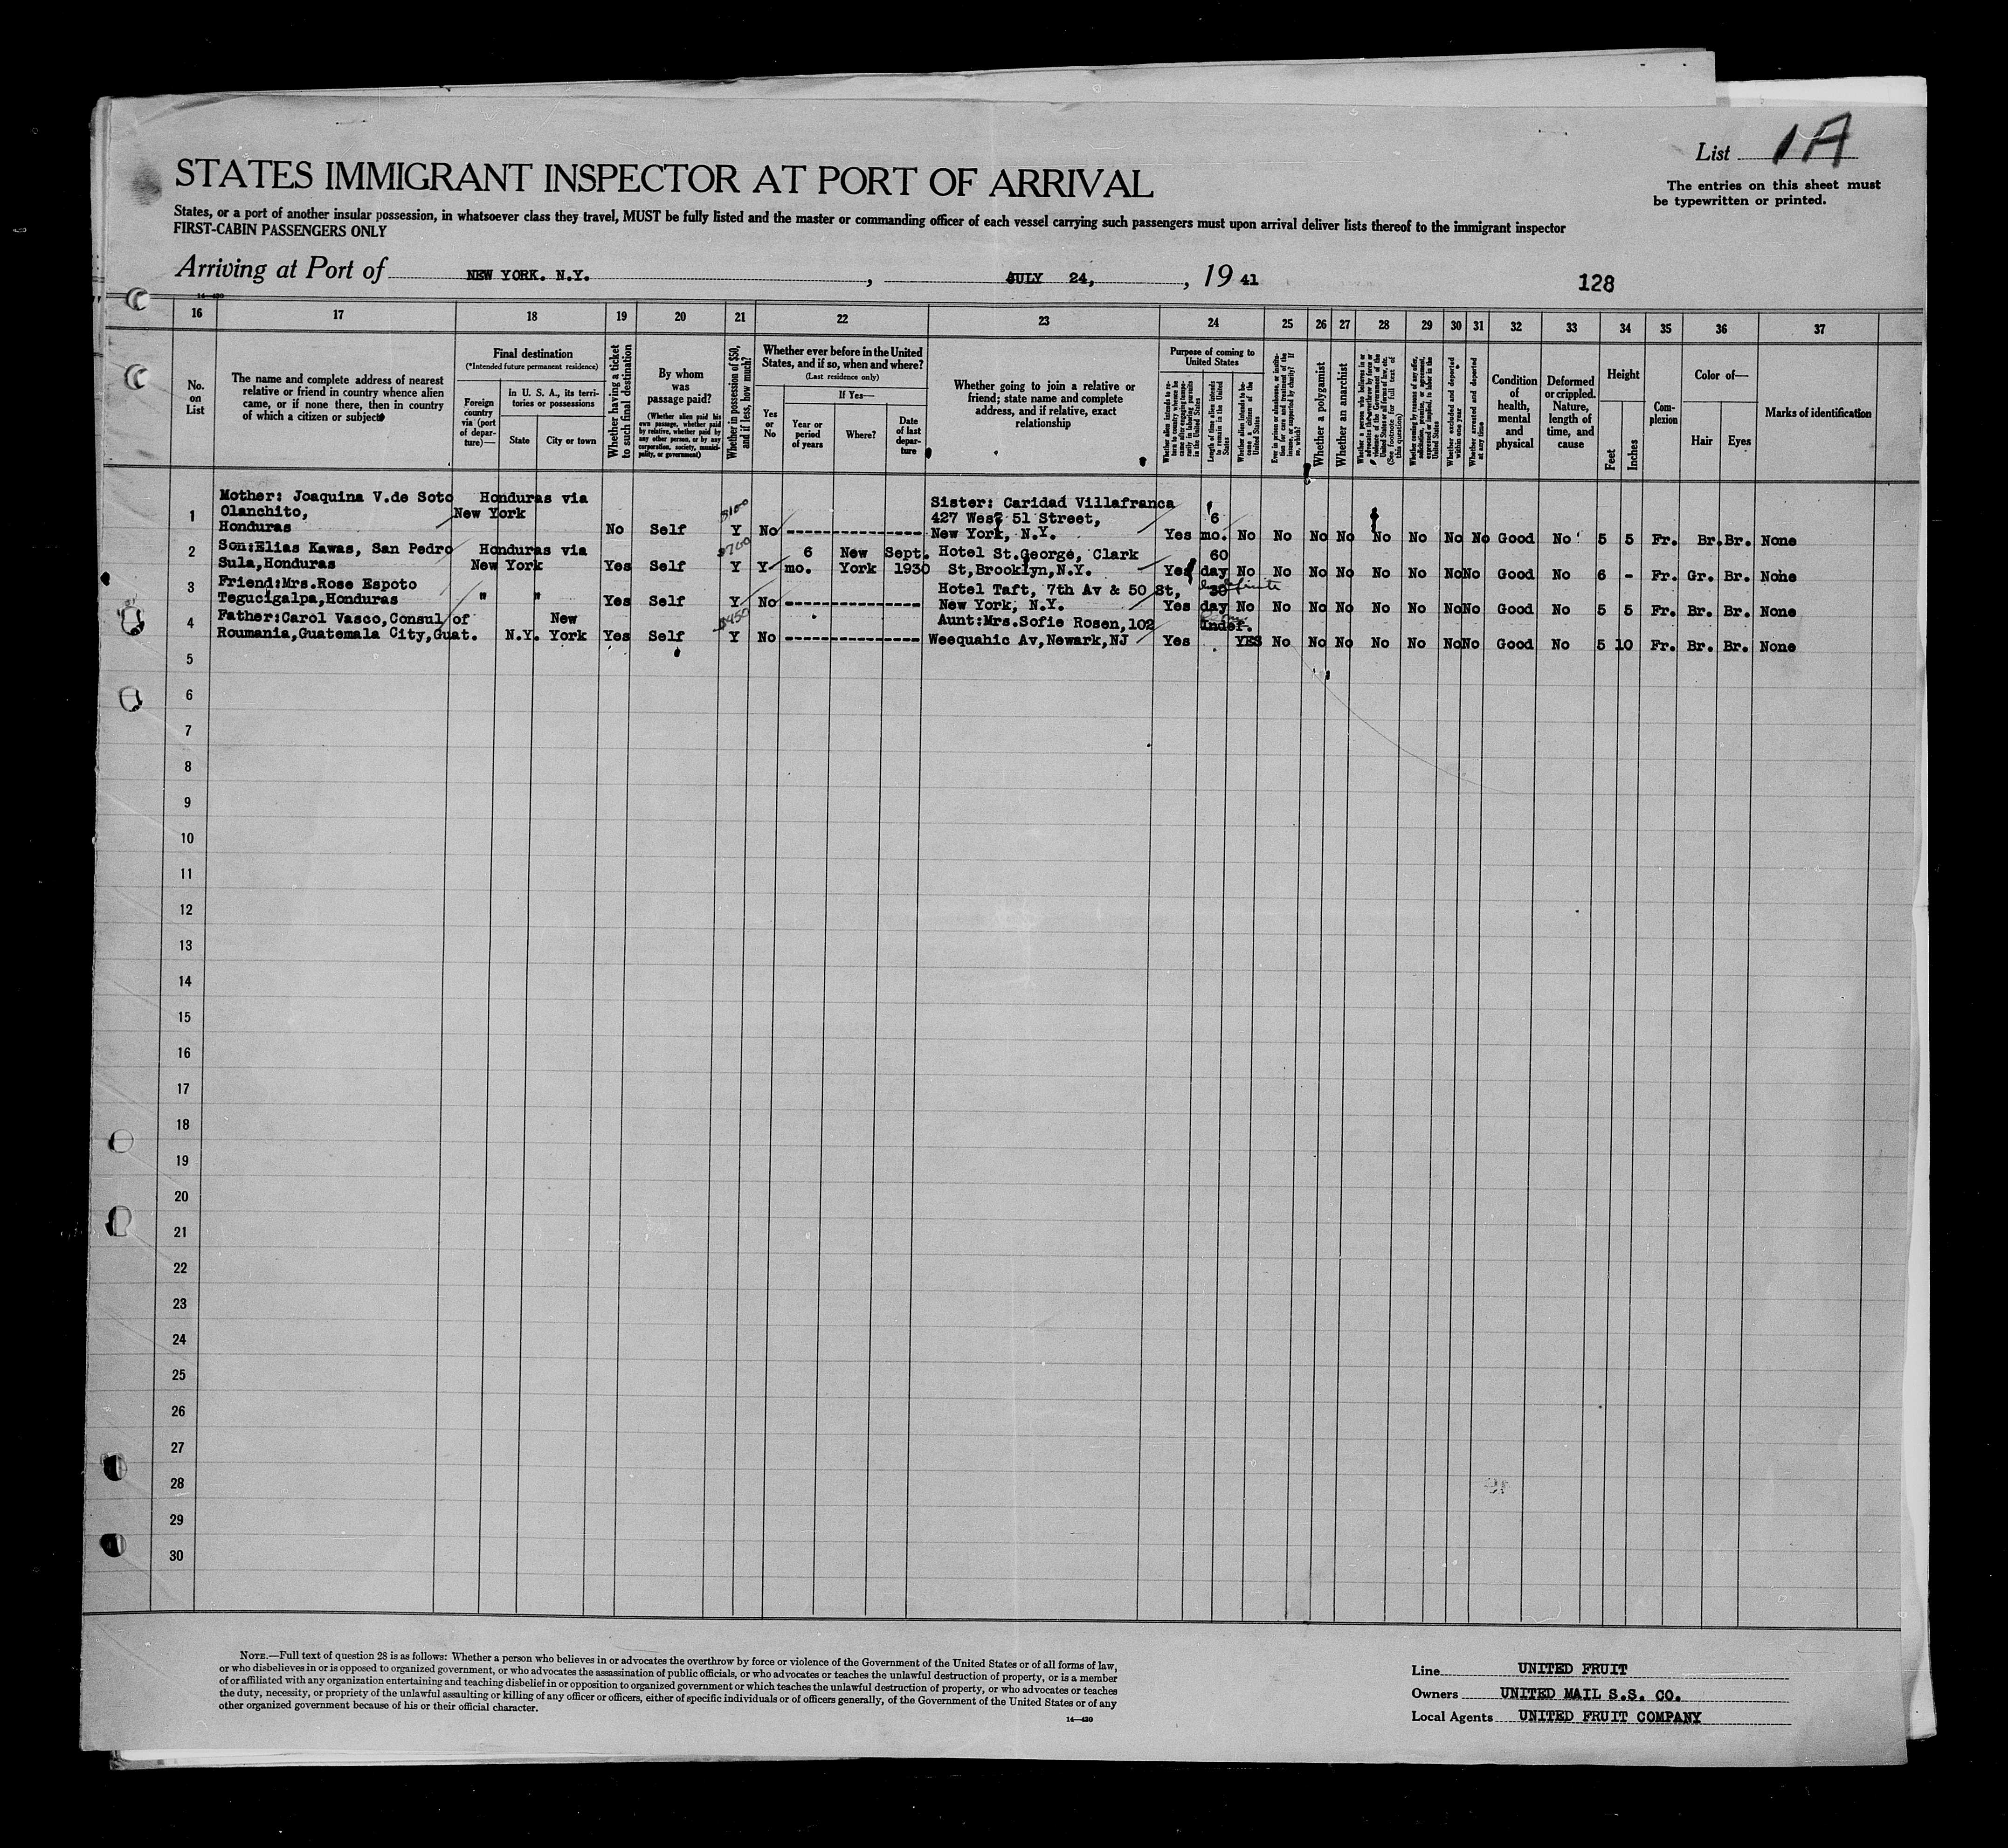 List 1A
The entries on this sheet must
be typewritten or printed.
STATES IMMIGRANT INSPECTOR AT PORT OF ARRIVAL
States, or a port of another insular possession, in whatsoever class they travel, MUST be fully listed and the master or commanding officer of each vessel carrying such passengers must upon arrival deliver lists thereof to the immigrant inspector
FIRST-CABIN PASSENGERS ONLY
Arriving at Port of NEW YORK. N.Y. , JULY 24, , 19 41
128
14—430
16 17 18 19 20 21 22 23 24 25 26 27 28 29 30 31 32 33 34 35 36 37
No.
on
List
The name and complete address of nearest
relative or friend in country whence alien
came, or if none there, then in country
of which a citizen or subject
Final destination
(*Intended future permanent residence)
Foreign
country
via (port
of depar-
ture)—
In U. S. A., its terri-
tories or possessions
State
City or town
Whether having a ticket
to such final destination
By whom
was
passage paid?
(Whether alien paid his
own passage, whether paid
by relative, whether paid by
any other person, or by any
corporation, society, munici-
pality, or government)
Whether in possession of $50,
and if less, how much?
Whether ever before in the United
States, and if so, when and where?
(Last residence only)
Yes
or
No
If Yes—
Year or
period
of years
Where?
Date
of last
depar-
ture
Whether going to join a relative or
friend; state name and complete
address, and if relative, exact
relationship
Purpose of coming to
United States
Length of time alien intends
to remain in the United
States
Whether alien intends to be-
come a citizen of the
United States
Whether a polygamist
Whether an anarchist
Whether arrested and deported
at any time
Condition
of
health,
mental
and
physical
Deformed
or crippled.
Nature,
length of
time, and
cause
Height
Feet
Inches
Com-
plexion
Color of—
Hair
Eyes
Marks of identification
Mother: Joaquina V.de Soto Honduras via $100 Sister: Caridad Villafranca
1 Olanchito, New York 427 West 51 Street, 6
Honduras No Self Y No New York, N.Y. Yes mo. No No No No No No No No Good No 5 5 Fr. Br. Br. None
2 Son:Elias Kawas, San Pedro Honduras via $700 6 New Sept. Hotel St.George, Clark 60
Sula,Honduras New York Yes Self Y Y mo. York 1930 St,Brooklyn,N.Y. Yes day No No No No No No No No Good No 6 - Fr. Gr. Br. None
3 Friend:Mrs.Rose Espoto Hotel Taft, 7th Av & 50 St, 30
Tegucigalpa,Honduras " " Yes Self Y No New York, N.Y. Yes day No No No No No No No No Good No 5 5 Fr. Br. Br. None
4 Father:Carol Vasco,Consul of New $450 Aunt:Mrs.Sofie Rosen,102 Indef.
Roumania,Guatemala City,Guat. N.Y. York Yes Self Y No Weequahic Av,Newark,NJ Yes YES No No No No No No No Good No 5 10 Fr. Br. Br. None
5
6
7
8
9
10
11
12
13
14
15
16
17
18
19
20
21
22
23
24
25
26
27
28
29
30
NOTE.—Full text of question 28 is as follows: Whether a person who believes in or advocates the overthrow by force or violence of the Government of the United States or of all forms of law,
or who disbelieves in or is opposed to organized government, or who advocates the assassination of public officials, or who advocates or teaches the unlawful destruction of property, or is a member
of or affiliated with any organization entertaining and teaching disbelief in or opposition to organized government or which teaches the unlawful destruction of property, or who advocates or teaches
the duty, necessity, or propriety of the unlawful assaulting or killing of any officer or officers, either of specific individuals or of officers generally, of the Government of the United States or of any
other organized government because of his or their official character.
14—430
Line UNITED FRUIT
Owners UNITED MAIL S.S. CO.
Local Agents UNITED FRUIT COMPANY